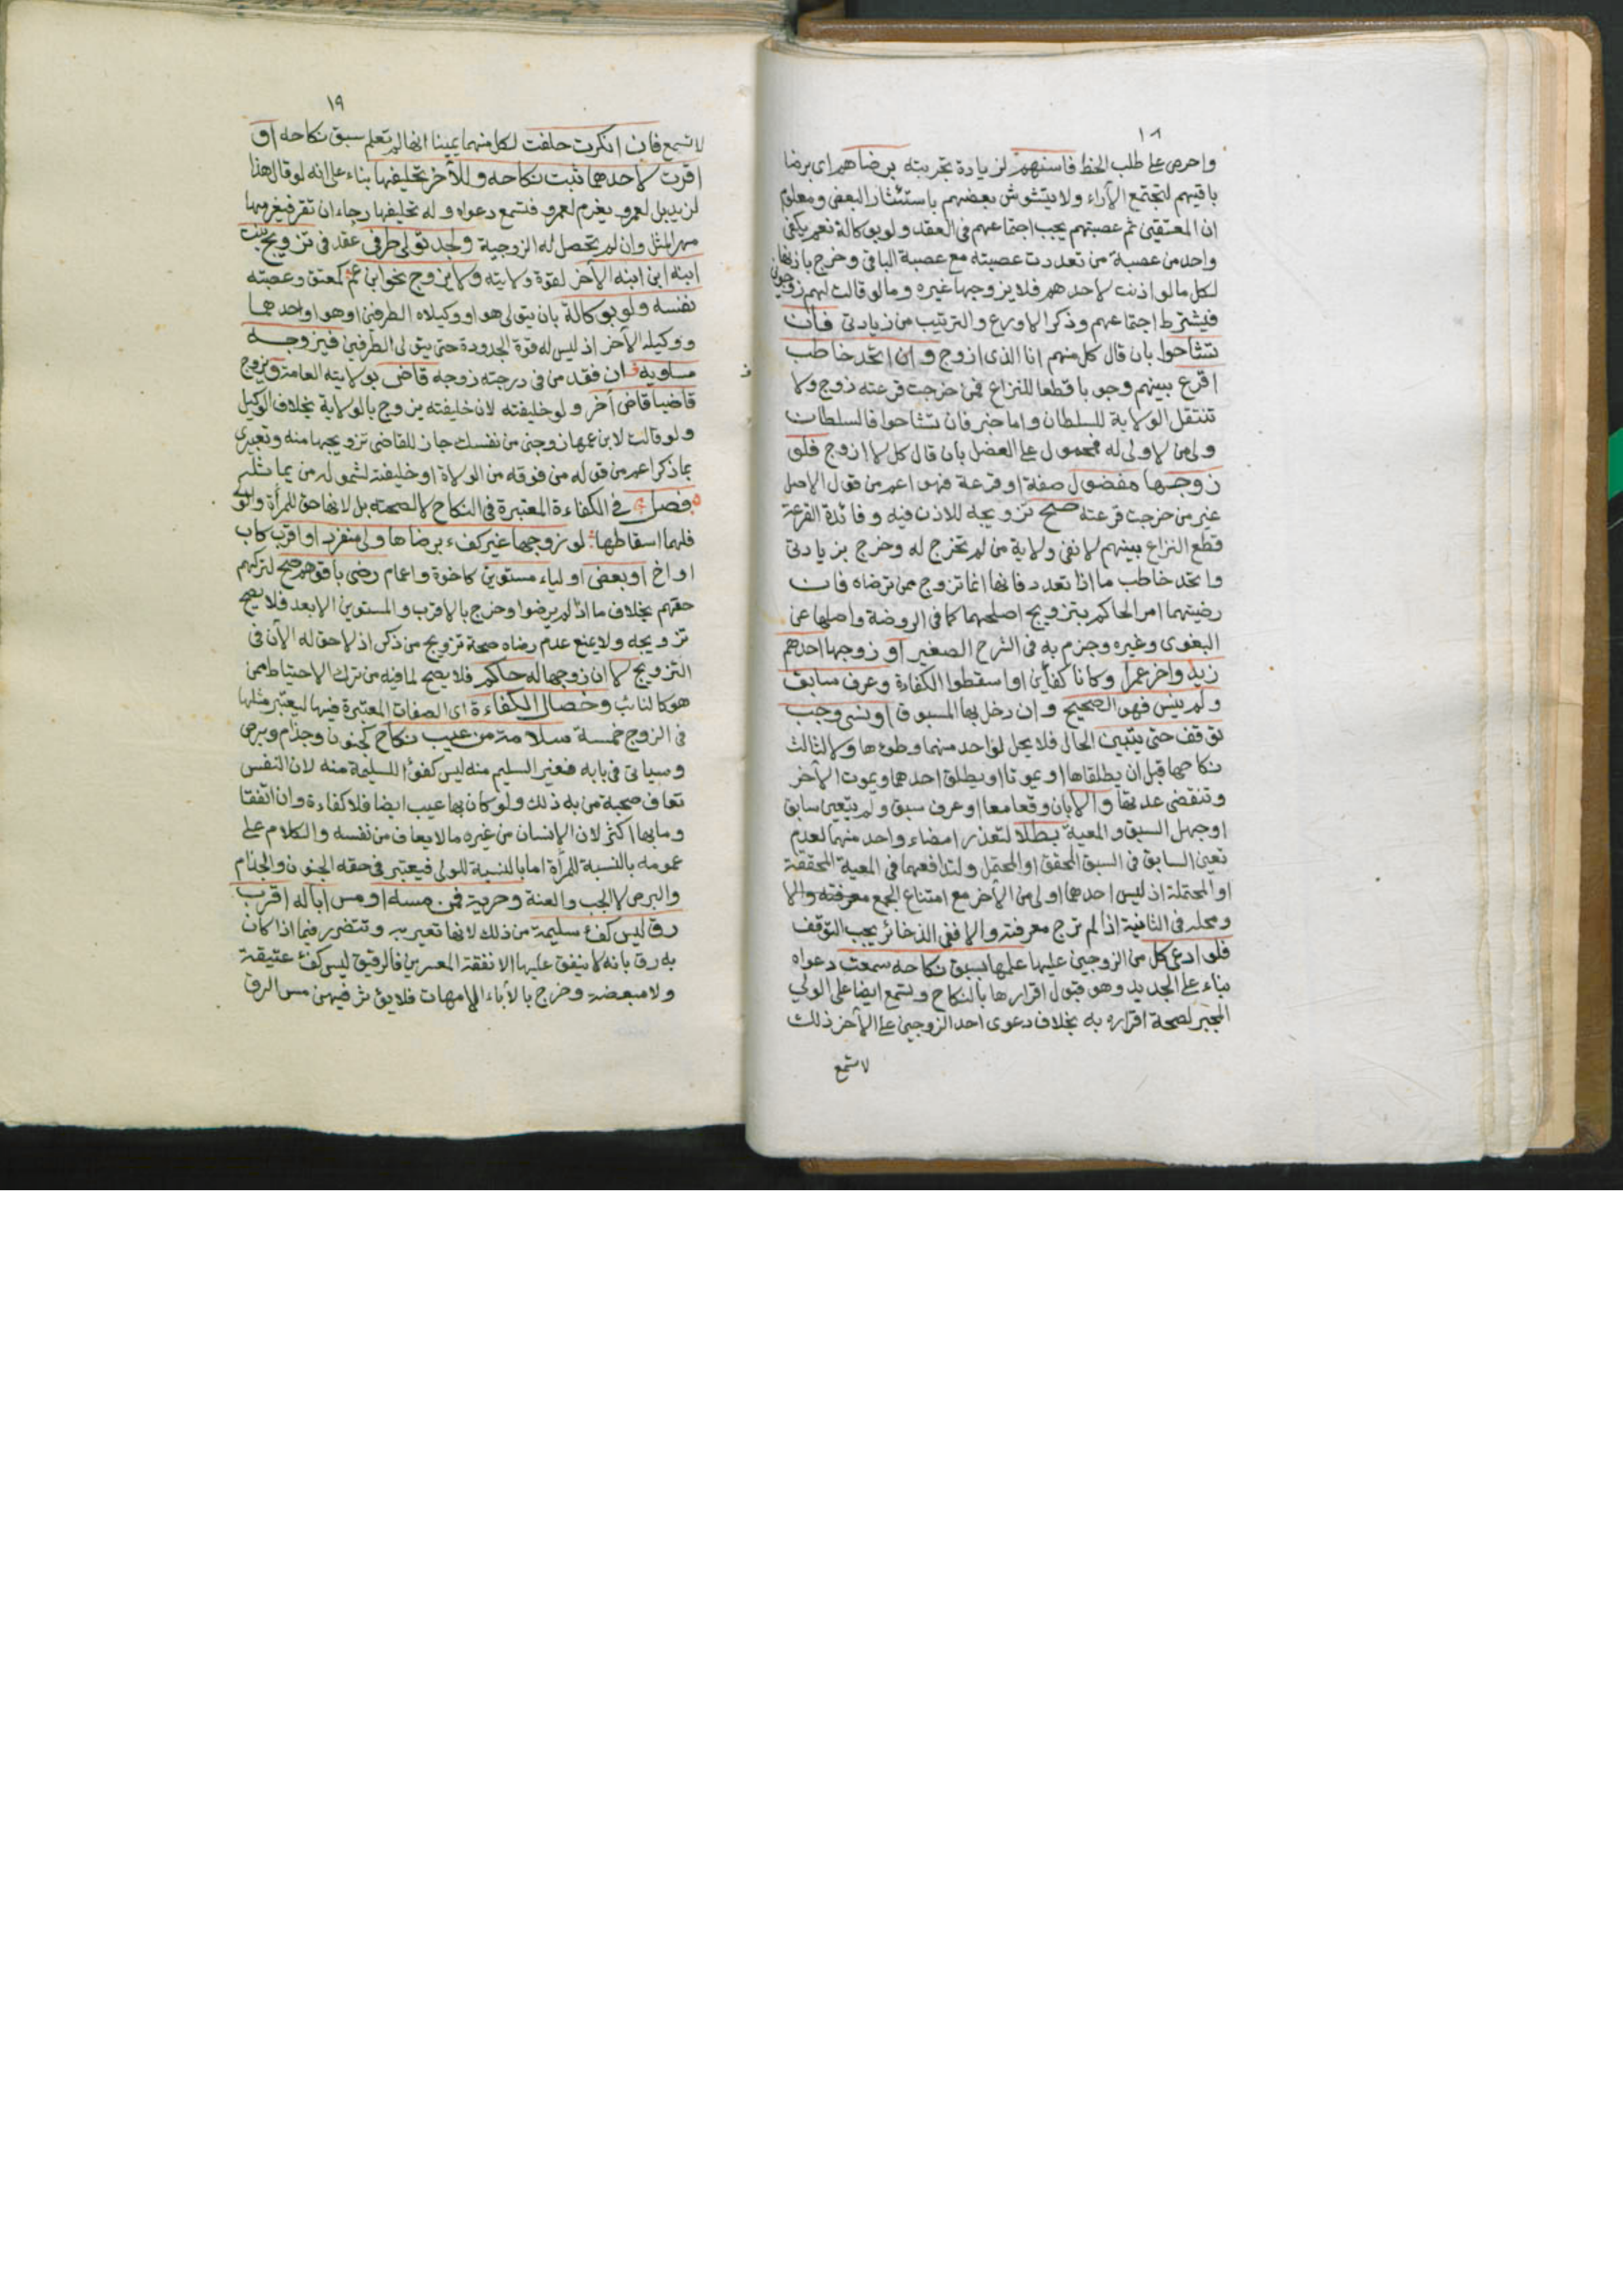 ١٨
واحرص على طلب الحظ فاسنهم لزيادة تجربته برضاهم اى برضا
باقيهم لتجتمع الآراء ولا يتشوش بعضهم باستئثار البعض ومعلوم
ان المعتقين ثم عصبتهم يجب اجتماعهم فى العقد ولو بوكالة نعم يكفى
واحد من عصبة من تعددت عصبته مع عصبة الباقى وخرج باذنها
لكل ما لو اذنت لاحدهم فلا يزوجها غيره وما لو قالت لهم زوجونى
فيشترط اجتماعهم وذكر الاورع والترتيب من زيادتى فان
تشاحوا بان قال كل منهم انا الذى ازوج وان اتحد خاطب
اقرع بينهم وجوبا قطعا للنزاع فمن خرجت قرعته زوج ولا
تنتقل الولاية للسلطان واما خبر فان تشاحوا فالسلطان
ولى من لا ولى له فمحمول على العضل بان قال كل لا ازوج فلو
زوجها مفضول صفة او قرعة فهو اعم من قول الاصل
غير من خرجت قرعته صح تزويجه للاذن فيه وفائدة القرعة
قطع النزاع بينهم لا نفى ولاية من لم تخرج له وخرج بزيادتى
واتحد خاطب ما اذا تعدد فانها انما تزوج ممن ترضاه فان
رضيتهما امر الحاكم بتزويج اصلحهما كما فى الروضة واصلها عن
البغوى وغيره وجزم به فى الشرح الصغير او زوجها احدهم
زيدا واخر عمرا وكانا كفأين او اسقطوا الكفاءة وعرف سابق
ولم ينس فهو الصحيح وان دخل بها المسبوق او نسى وجب
توقف حتى يتبين الحال فلا يحل لواحد منهما وطؤها ولا لثالث
نكاحها قبل ان يطلقاها او يموتا او يطلق احدهما ويموت الآخر
وتنقضى عدتها والا بان وقعا معا او عرف سبق ولم يتعين سابق
او جهل السبق والمعية بطلا لتعذر امضاء واحد منهما لعدم
تعين السابق فى السبق المحقق او المحتمل ولتدافعهما فى المعية المحققة
او المحتملة اذ ليس احدهما اولى من الآخر مع امتناع الجمع معرفته والا
ومحله فى الثانية اذا لم ترج معرفته والا ففى الذخائر يجب التوقف
فلو ادعى كل من الزوجين عليها علمها بسبق نكاحه سمعت دعواه
بناء على الجديد وهو قبول اقرارها بالنكاح وتسمع ايضا على الولى
المجبر لصحة اقراره به بخلاف دعوى احد الزوجين على الآخر ذلك
لا تسمع
١٩
لا تسمع فان انكرت حلفت لكل منهما يمينا انها لم تعلم سبق نكاحه او
اقرت لاحدهما ثبت نكاحه وللآخر تحليفها بناء على انه لو قال هذا
لزيد بل لعمرو يغرم لعمرو فتسمع دعواه وله تحليفها رجاء ان تقر فيغرمها
مهر المثل وان لم تحصل له الزوجية ولجد تولى طرفى عقد فى تزويج بنت
ابنه ابن ابنه الآخر لقوة ولايته ولا يزوج نحو ابن عم كمعتق وعصبته
نفسه ولو بوكالة بان يتولى هو او وكيلاه الطرفين او هو او احدهما
ووكيله الآخر اذ ليس له قوة الجدودة حتى يتولى الطرفين فيزوجه
مساويه فان فقد من فى درجته زوجه قاض بولايته العامة ويزوج
قاضيا قاض آخر ولو خليفته لان خليفته يزوج بالولاية بخلاف الوكيل
ولو قالت لابن عمها زوجنى من نفسك جاز للقاضى تزويجها منه وتعبيرى
بما ذكر اعم من قوله من فوقه من الولاة او خليفته لشموله من يماثله
فصل فى الكفاءة المعتبرة فى النكاح لا لصحته بل لانها حق للمرأة والولى
فلهما اسقاطها لو زوجها غير كفء برضاها ولى منفرد او اقرب كاب
او اخ او بعض اولياء مستوين كاخوة واعمام رضى باقوهم صح لتركهم
حقهم بخلاف ما اذا لم يرضوا وخرج بالاقرب والمستوين الابعد فلا يصح
تزويجه ولا يمنع عدم رضاه صحة تزويج من ذكر اذ لا حق له الآن فى
التزويج لا ان زوجها له حاكم فلا يصح لما فيه من ترك الاحتياط ممن
هو كالنائب وخصال الكفاءة اى الصفات المعتبرة فيها ليعتبر مثلها
فى الزوج خمسة سلامة من عيب نكاح كجنون وجذام وبرص
وسياتى فى بابه فغير السليم منه ليس كفؤا للسليمة منه لان النفس
تعاف صحبة من به ذلك ولو كان بها عيب ايضا فلا كفاءة وان اتفقا
وما بها اكثر لان الإنسان من غيره ما لا يعاف من نفسه والكلام على
عمومه بالنسبة للمرأة اما بالنسبة للولى فيعتبر فى حقه الجنون والجذام
والبرص لا الجب والعنة وحرية فمن مسه او مس ابا له اقرب
رق ليس كفء سليمة من ذلك لانها تعير به وتتضرر فيما اذا كان
به رق بانه لا ينفق عليها الا نفقة المعسرين فالرقيق ليس كفء عتيقة
ولا مبعضة وخرج بالآباء الامهات فلا يؤثر فيهن مس الرق